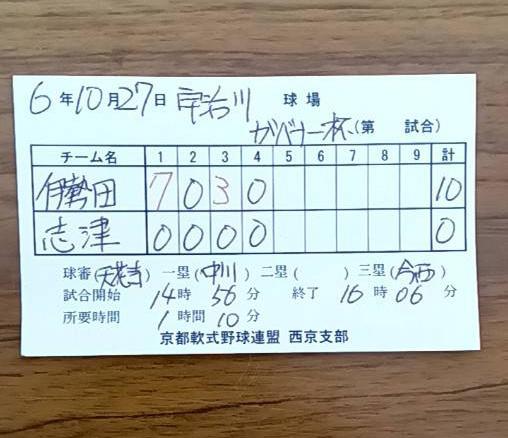 6年10月27日 宇治川 球場
ガバナー杯(第 試合)
チーム名 1 2 3 4 5 6 7 8 9 計
伊勢田 7 0 3 0 10
志津 0 0 0 0 0
球審( ) 一塁(中川) 二塁( ) 三塁(今西)
試合開始 14時 56分 終了 16時 06分
所要時間 1時間 10分
京都軟式野球連盟 西京支部